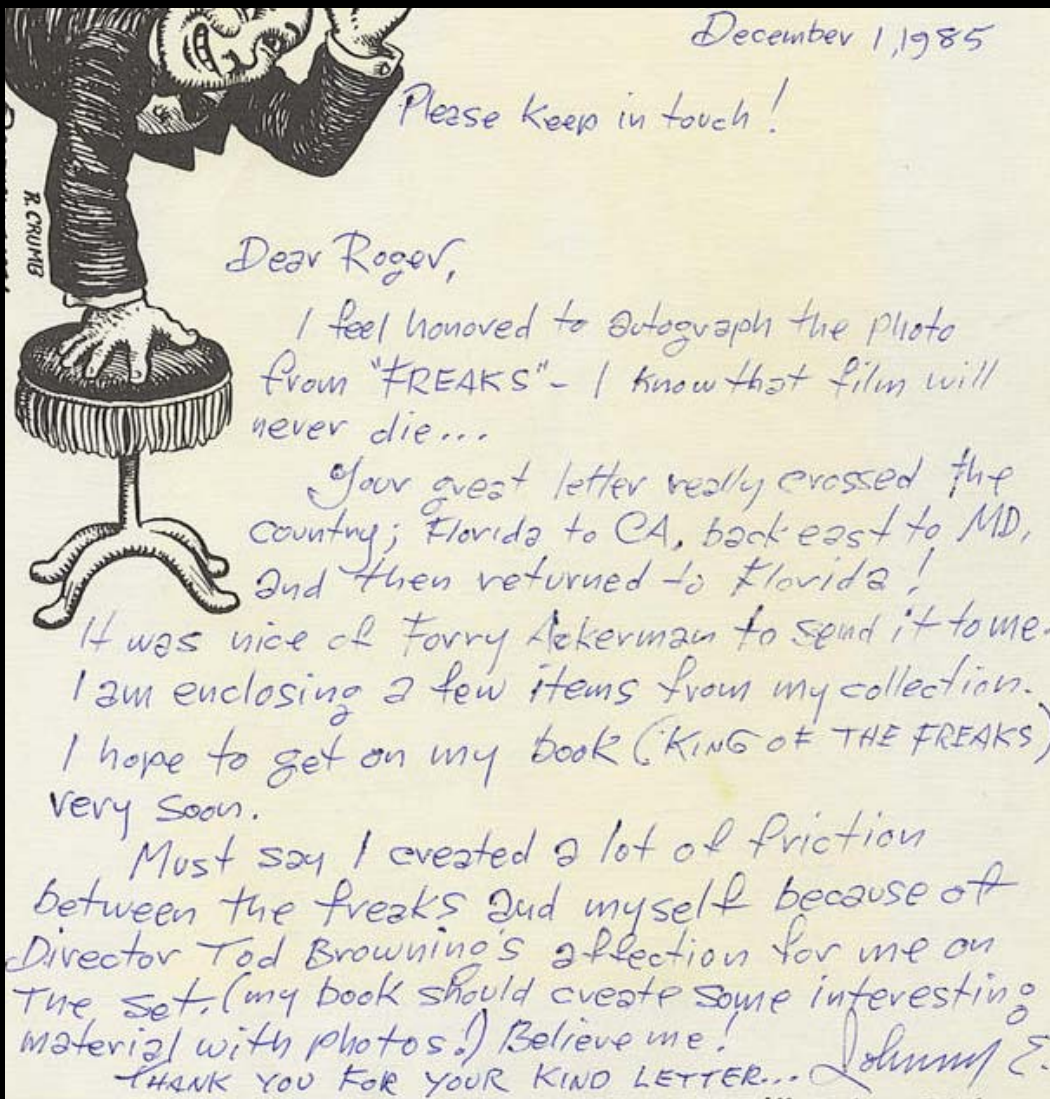 December 1, 1985
Please keep in touch!
R. CRUMB
Dear Roger,
I feel honored to autograph the photo
from "FREAKS" - I know that film will
never die...
Your great letter really crossed the
country; Florida to CA, back east to MD,
and then returned to Florida!
It was nice of Forry Ackerman to send it to me.
I am enclosing a few items from my collection.
I hope to get on my book (KING OF THE FREAKS)
very soon.
Must say I created a lot of friction
between the freaks and myself because of
Director Tod Browning's affection for me on
the set. (my book should create some interesting
material with photos!) Believe me!
THANK YOU FOR YOUR KIND LETTER... Johnny E.